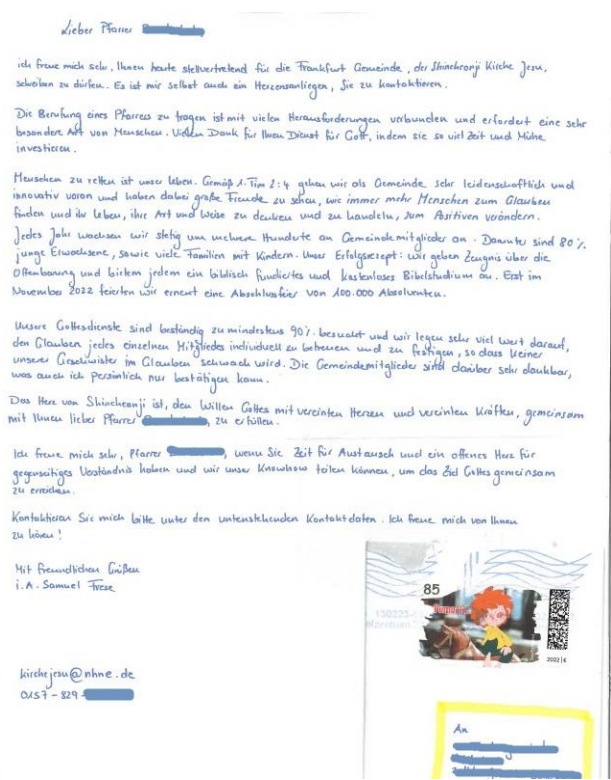 Lieber Pfarrer
ich freue mich sehr, Ihnen heute stellvertretend für die Frankfurt Gemeinde, der Shincheonji Kirche Jesu,
schreiben zu dürfen. Es ist mir selbst auch ein Herzensanliegen, Sie zu kontaktieren.
Die Berufung eines Pfarrers zu tragen ist mit vielen Herausforderungen verbunden und erfordert eine sehr
besondere Art von Menschen. Vielen Dank für Ihren Dienst für Gott, indem sie so viel Zeit und Mühe
investieren.
Menschen zu retten ist unser Leben. Gemäß 1. Tim 2:4 gehen wir als Gemeinde sehr leidenschaftlich und
innovativ voran und haben dabei große Freude zu sehen, wie immer mehr Menschen zum Glauben
finden und ihr Leben, ihre Art und Weise zu denken und zu handeln, zum Positiven verändern.
Jedes Jahr wachsen wir stetig um mehrere Hunderte an Gemeindemitglieder an. Darunter sind 80%
junge Erwachsene, sowie viele Familien mit Kindern. Unser Erfolgsrezept: wir geben Zeugnis über die
Offenbarung und bieten jedem ein biblisch fundiertes und kostenloses Bibelstudium an. Erst im
November 2022 feierten wir erneut eine Abschlussfeier von 100.000 Absolventen.
Unsere Gottesdienste sind beständig zu mindestens 90% besucht und wir legen sehr viel Wert darauf,
den Glauben jedes einzelnen Mitgliedes individuell zu betreuen und zu festigen, so dass keiner
unserer Geschwister im Glauben schwach wird. Die Gemeindemitglieder sind darüber sehr dankbar,
was auch ich persönlich nur bestätigen kann.
Das Herz von Shincheonji ist, den Willen Gottes mit vereinten Herzen und vereinten Kräften, gemeinsam
mit Ihnen lieber Pfarrer , zu erfüllen.
Ich freue mich sehr, Pfarrer , wenn Sie Zeit für Austausch und ein offenes Herz für
gegenseitiges Verständnis haben und wir unser Knowhow teilen können, um das Ziel Gottes gemeinsam
zu erreichen.
Kontaktieren Sie mich bitte unter den untenstehenden Kontaktdaten. Ich freue mich von Ihnen
zu hören!
Mit freundlichen Grüßen
i.A. Samuel Frese
85
2022 | €
kirchejesu@nhne.de
0157-829-
An